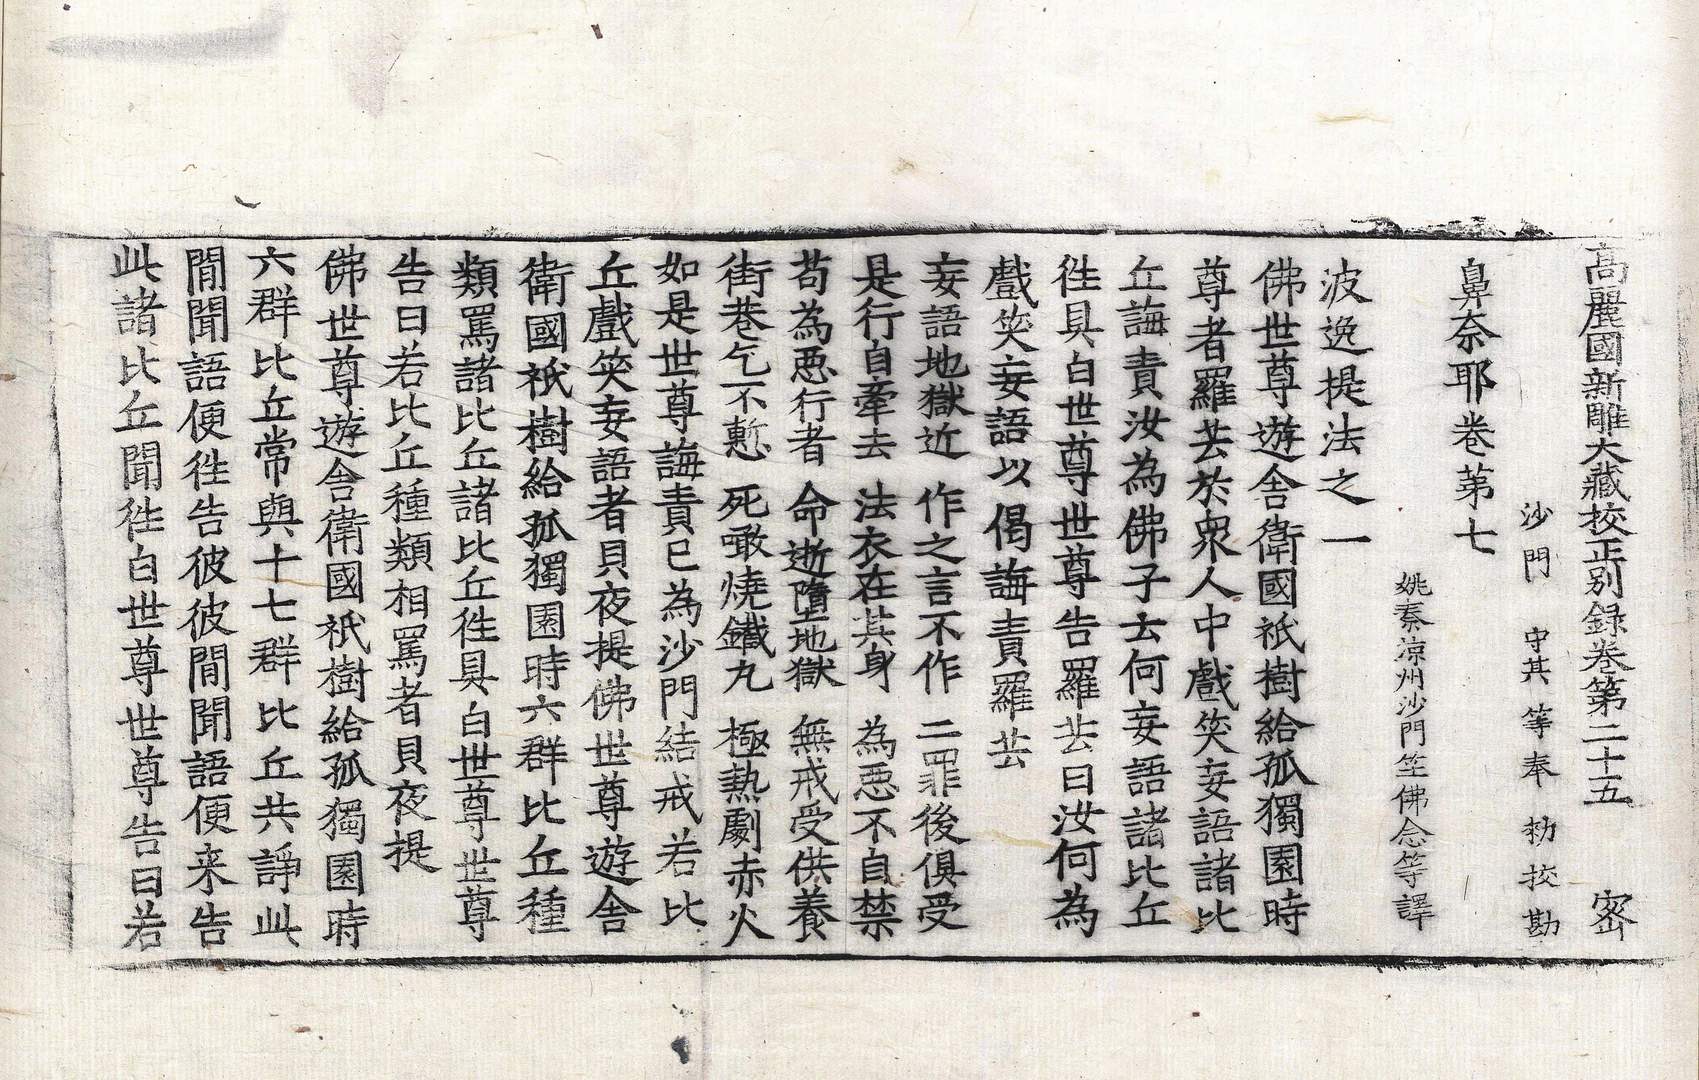 高麗國新雕大藏校正别録卷第二十五 密
沙門 守其 等 奉 勑 挍 勘
鼻奈耶卷第七
姚秦涼州沙門竺佛念等譯
波逸提法之一
佛世尊遊舍衛國祇樹給孤獨園時
尊者羅芸於衆人中戲笑妄語諸比
丘誨責汝為佛子云何妄語諸比丘
徃具白世尊世尊告羅芸曰汝何為
戲笑妄語以偈誨責羅芸
妄語地獄近 作之言不作 二罪後俱受
是行自牽去 法衣在其身 為惡不自禁
苟為惡行者 命逝墮地獄 無戒受供養
街巷乞不慙 死噉燒鐵丸 極熱劇赤火
如是世尊誨責已為沙門結戒若比
丘戲笑妄語者貝夜提佛世尊遊舍
衛國祇樹給孤獨園時六群比丘種
類罵諸比丘諸比丘徃具白世尊世尊
告曰若比丘種類相罵者貝夜提
佛世尊遊舍衛國祇樹給孤獨園時
六群比丘常與十七群比丘共諍此
間聞語便徃告彼彼間聞語便来告
此諸比丘聞徃白世尊世尊告曰若